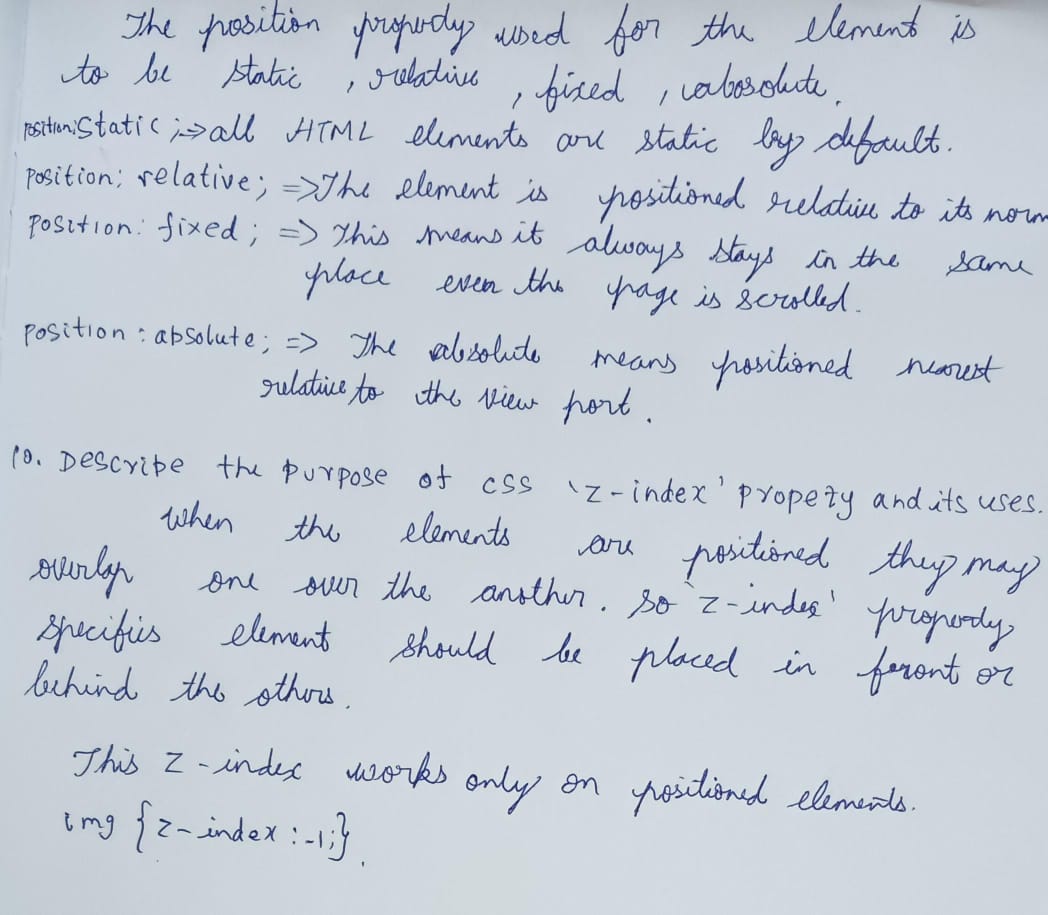 The position property used for the element is
to be static , relative , fixed , absolute.
Position: Static ; => all HTML elements are static by default.
Position: relative; => The element is positioned relative to its norm
Position: fixed ; => This means it always stays in the same
place even the page is scrolled.
Position : absolute; => The absolute means positioned nearest
relative to the view port .
10. Describe the purpose of css 'z-index' propezy and its uses.
When the elements are positioned they may
overlap one over the another. So 'z-index' property
specifies element should be placed in feront or
behind the others .
This z-index works only on positioned elements.
img {z-index : -1;}.